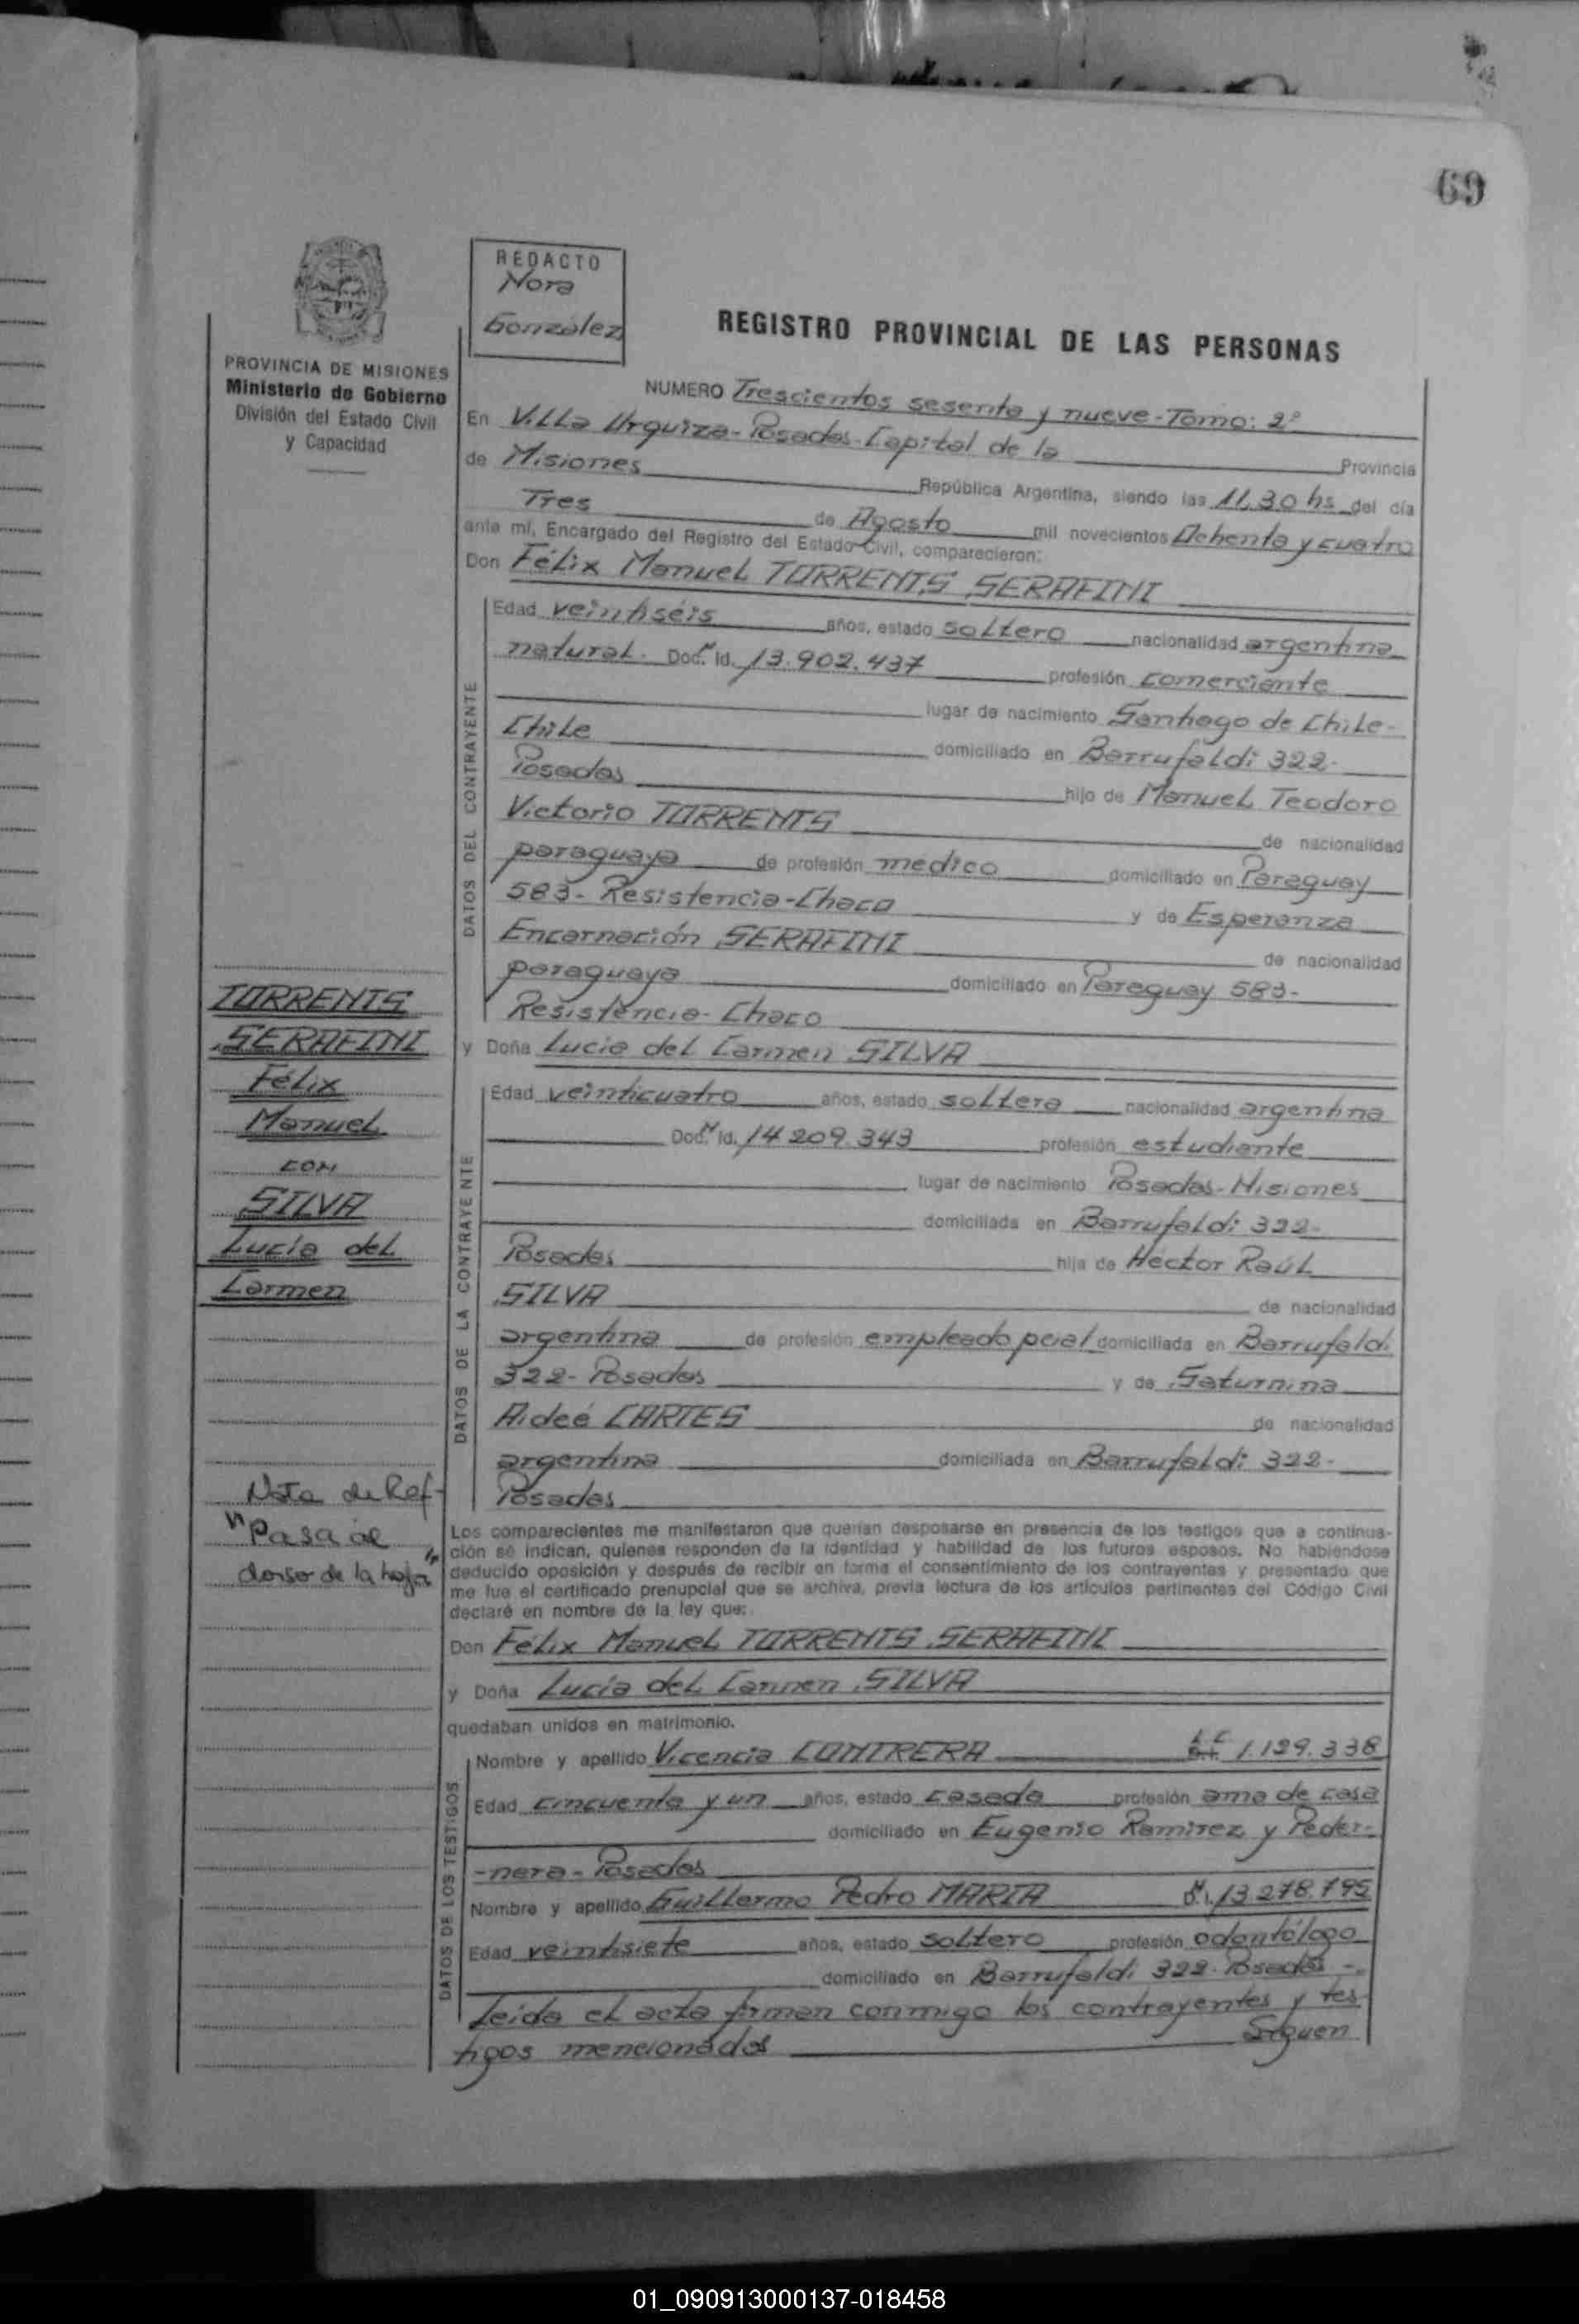 69
REDACTO
Nora
González
REGISTRO PROVINCIAL DE LAS PERSONAS
PROVINCIA DE MISIONES
Ministerio de Gobierno
División del Estado Civil
y Capacidad
NUMERO Trescientos sesenta y nueve-Tomo: 2º
En Villa Urquiza-Posadas-Capital de la Provincia
de Misiones República Argentina, siendo las 11,30 hs del día
Tres de Agosto mil novecientos Ochenta y cuatro
ante mí, Encargado del Registro del Estado Civil, comparecieron:
Don Félix Manuel TORRENTS SERAFINI
DATOS DEL CONTRAYENTE
Edad veintiséis años, estado soltero nacionalidad argentina
natural. Doc. Id. 13.902.437 profesión comerciante
lugar de nacimiento Santiago de Chile-
Chile domiciliado en Barrufaldi 322-
Posadas hijo de Manuel Teodoro
Victorio TORRENTS de nacionalidad
paraguaya de profesión médico domiciliado en Paraguay
583- Resistencia-Chaco y de Esperanza
Encarnación SERAFINI de nacionalidad
paraguaya domiciliado en Paraguay 583-
Resistencia-Chaco
y Doña Lucia del Carmen SILVA
DATOS DE LA CONTRAYENTE
Edad veinticuatro años, estado soltera nacionalidad argentina
Doc. Id. 14 209.343 profesión estudiante
lugar de nacimiento Posadas-Misiones
domiciliada en Barrufaldi 322-
Posadas hija de Héctor Raúl
SILVA de nacionalidad
argentina de profesión empleado pcial domiciliada en Barrufaldi
322- Posadas y de Saturnina
Aideé CARTES de nacionalidad
argentina domiciliada en Barrufaldi 322-
Posadas
TORRENTS
SERAFINI
Félix
Manuel
CON
SILVA
Lucía del
Carmen
Nota de Ref-
Pasa al
dorso de la hoja
Los comparecientes me manifestaron que querían desposarse en presencia de los testigos que a continua-
ción se indican, quienes responden de la identidad y habilidad de los futuros esposos. No habiéndose
deducido oposición y después de recibir en forma el consentimiento de los contrayentes y presentado que
me fue el certificado prenupcial que se archiva, previa lectura de los artículos pertinentes del Código Civil
declaré en nombre de la ley que:
Don Félix Manuel TORRENTS SERAFINI
y Doña Lucía del Carmen SILVA
quedaban unidos en matrimonio.
DATOS DE LOS TESTIGOS
Nombre y apellido Vicencia CONTRERA LC 1.129.338
Edad cincuenta y un años, estado casada profesión ama de casa
domiciliado en Eugenio Ramirez y Peder-
-nera-Posadas
Nombre y apellido Guillermo Pedro MARIA 13.278.795
Edad veintisiete años, estado soltero profesión odontólogo
domiciliado en Barrufaldi 322-Posadas-
Leida el acta firman conmigo los contrayentes y tes-
tigos mencionados Siguen
01_090913000137-018458